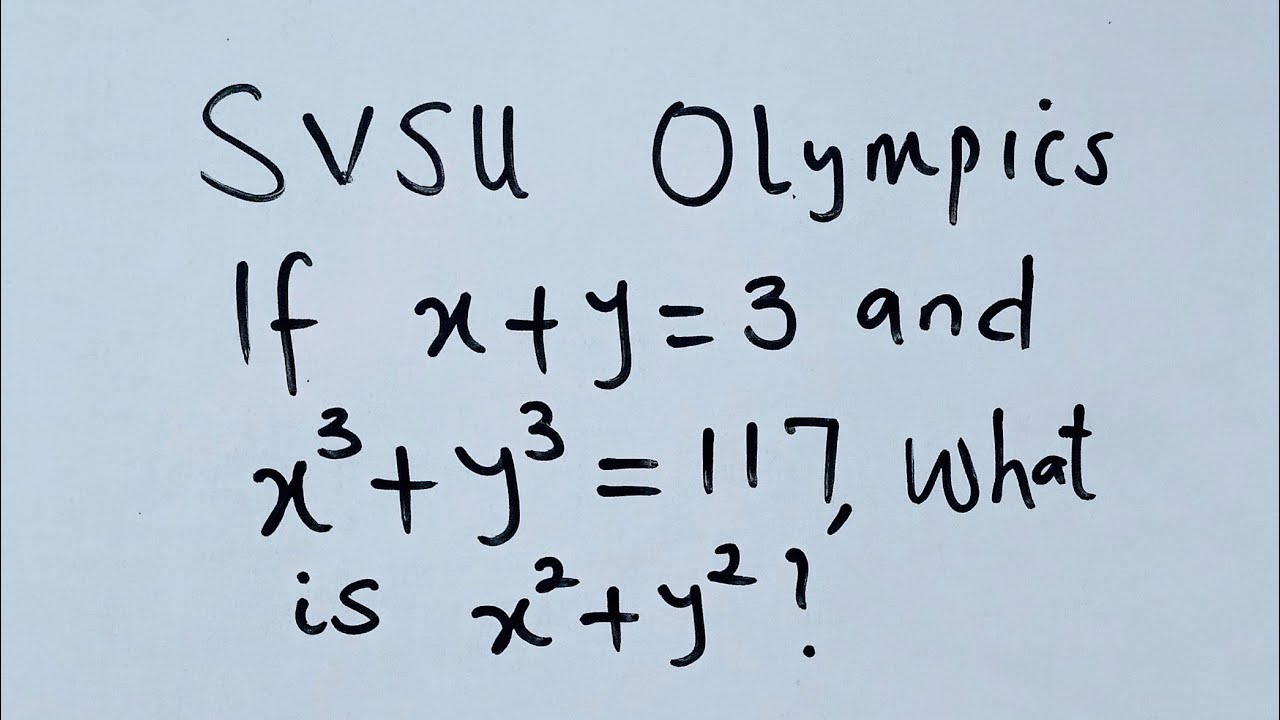 SVSU Olympics
If x+y=3 and
x³+y³=117, what
is x²+y²?